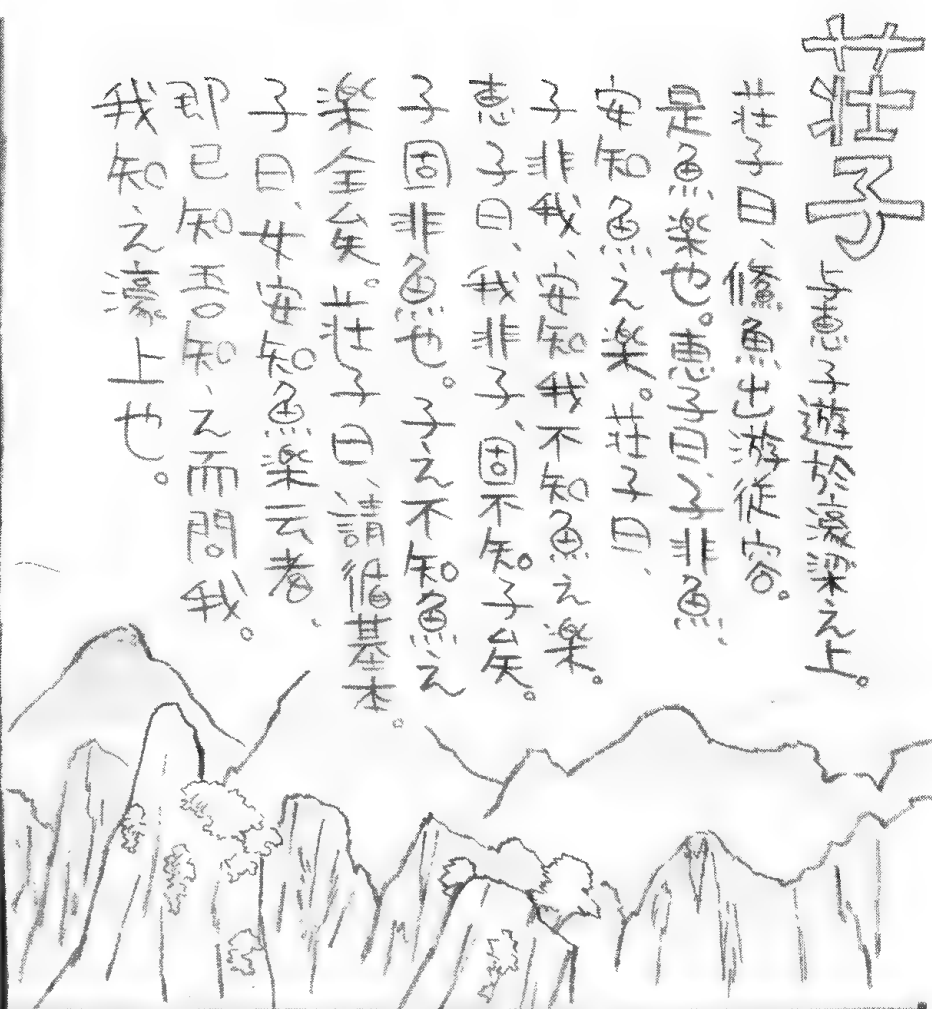 荘子与恵子遊於濠梁之上。
荘子曰、鯈魚出游従容。
是魚楽也。恵子曰、子非魚、
安知魚之楽。荘子曰、
子非我、安知我不知魚之楽。
恵子曰、我非子、固不知子矣。
子固非魚也。子之不知魚之
楽全矣。荘子曰、請循基本。
子曰、女安知魚楽云者、
即已知吾知之而問我。
我知之濠上也。